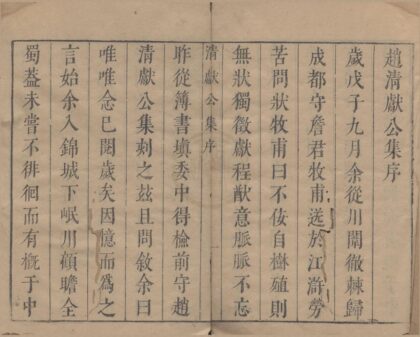 趙清獻公集序
歲戊子九月余從川闈徹棘歸
成都守詹君牧甫送於江滸勞
苦問狀牧甫曰不佞自樹殖則
無狀獨徵獻程猷意脈脈不忘
清獻公集序
昨從簿書填委中得檢前守趙
清獻公集刻之玆且問敘余曰
唯唯念已閱歲矣因憶而為之
言始余入錦城下岷川顧瞻全
蜀蓋未嘗不徘徊而有概于中